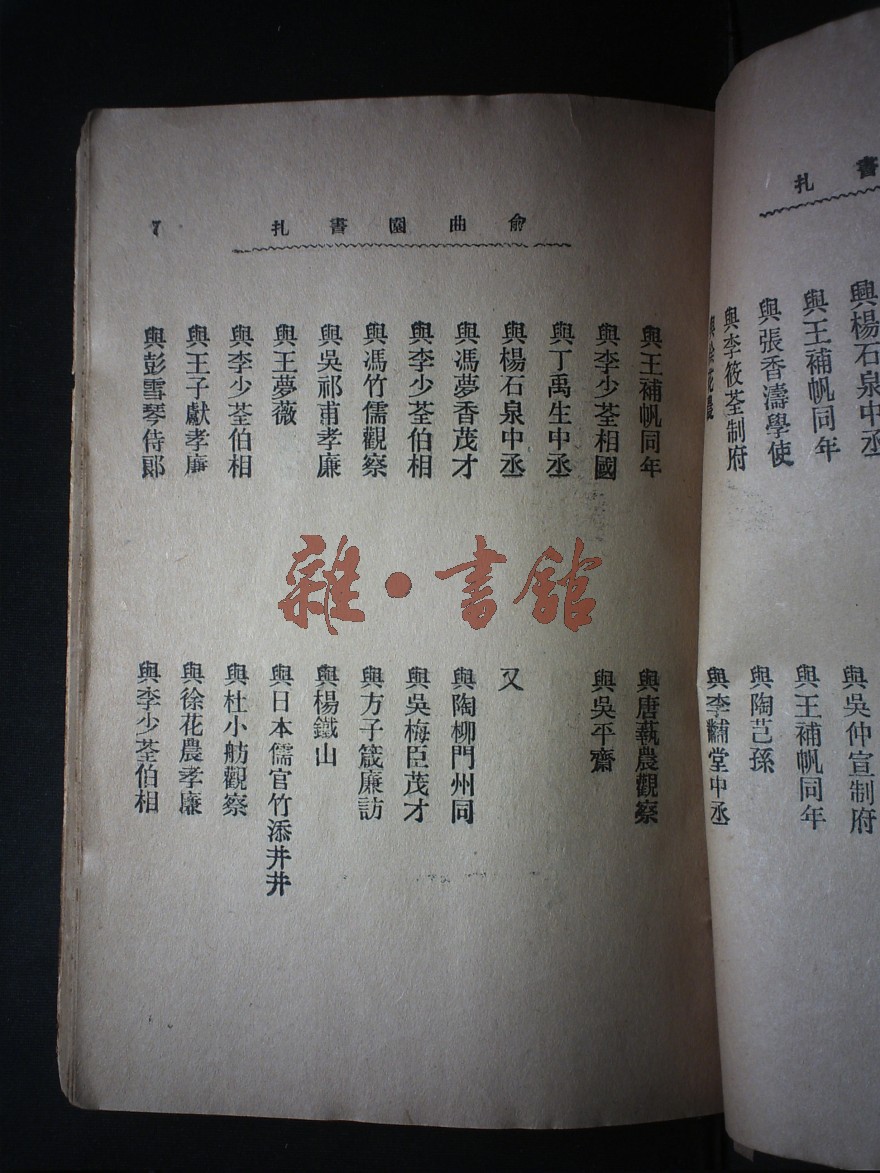 書扎
與楊石泉中丞
與王補帆同年
與張香濤學使
與李筱荃制府
與徐花農
與吳仲宣制府
與王補帆同年
與陶芑孫
與李黼堂中丞
俞曲園書扎
7
與王補帆同年
與李少荃相國
與丁禹生中丞
與楊石泉中丞
與馮夢香茂才
與李少荃伯相
與馮竹儒觀察
與吳祁甫孝廉
與王夢薇
與李少荃伯相
與王子獻孝廉
與彭雪琴侍郎
與唐蓺農觀察
與吳平齋
又
與陶柳門州同
與吳梅臣茂才
與方子箴廉訪
與楊鐵山
與日本儒官竹添井井
與杜小舫觀察
與徐花農孝廉
與李少荃伯相
雜·書館